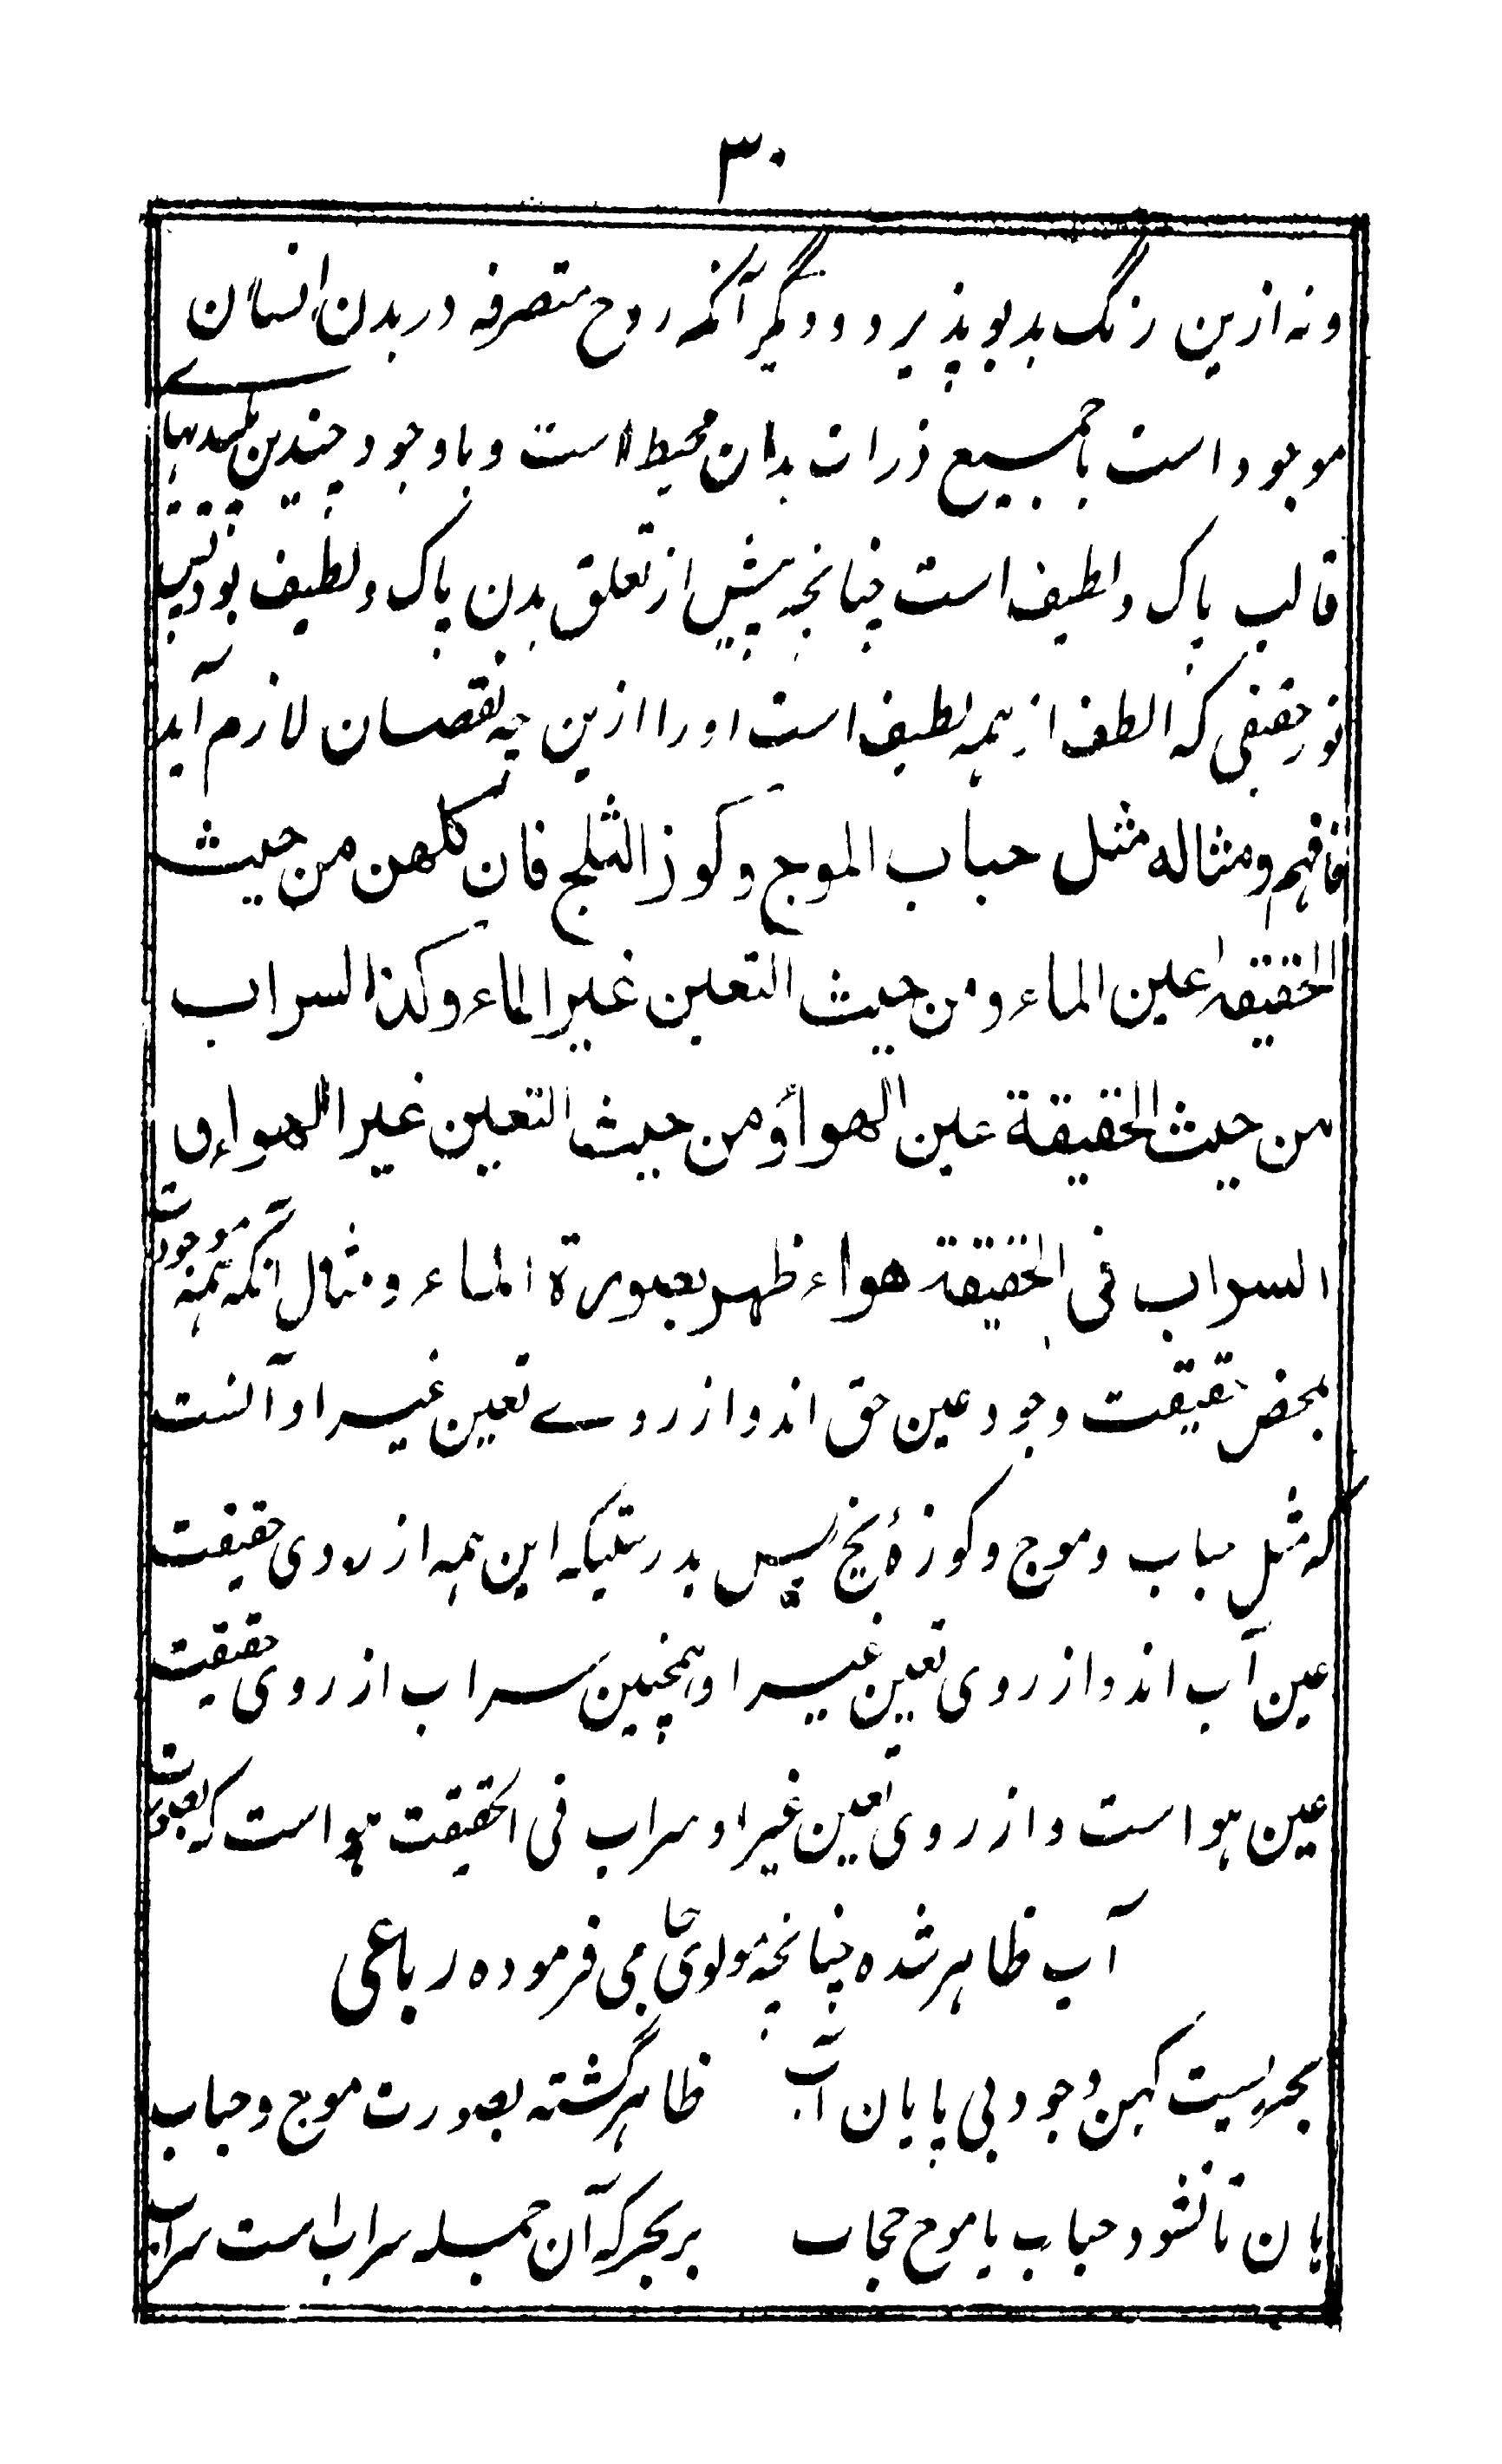 ۳۰
و نه ازین رنگ بد بو پذیرد و دیگر آنکه روح متصرفه در بدن انسان
موجود است با جمیع ذرات بدان محیط است و با وجود چندین پلیدیهای
قالب پاک و لطیف است چنانچه پیش از تعلق بدن پاک و لطیف بود پس
نور حقیقی که الطف از همه لطیف است او را ازین چه نقصان لازم آید
فافهم ومثاله مثل حباب الموج وكوز الثلج فان كلهن من حيث
الحقيقة عين الماء ومن حيث التعين غير الماء وكذا السراب
من حيث الحقيقة عين الهواء ومن حيث التعين غير الهواء و
السراب فى الحقيقة هواء ظهر بصورة الماء و مثال آنکه همه موجودات
بمحض حقیقت وجود عین حق اند و از روے تعین غیر او آنست
که مثل حباب و موج و کوزهٔ یخ پس بدرستیکه این همه از روی حقیقت
عین آب اند و از روی تعین غیر او همچنین سراب از روی حقیقت
عین هو است و از روی تعین غیر او سراب فی الحقیقت هو است که بصورت
آب ظاهر شده چنانچه مولوی جامی فرموده رباعی
بحریست کهن وجود بی پایان آب ظاهر گشته بصورت موج و حباب
هان تا نشود حباب یا موج حجاب بر بحر که آن جمله سراب است سراب